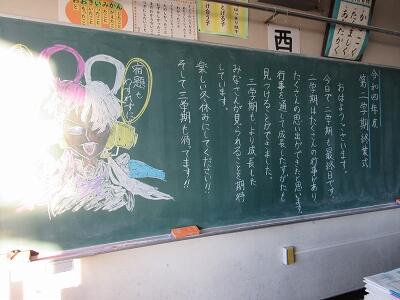 令和四年度
第二学期 終業式
おはようございます。
今日で二学期も最終日です。
二学期はたくさんの行事があり
たくさんの思い出ができたと思います。
行事を通して成長したすがたも
見つけることができました。
三学期も、より成長した
みなさんが見られることを期待
しています。
楽しい冬休みにしてください!!
そして三学期も待ってます!!
宿題も
わすれずに
西